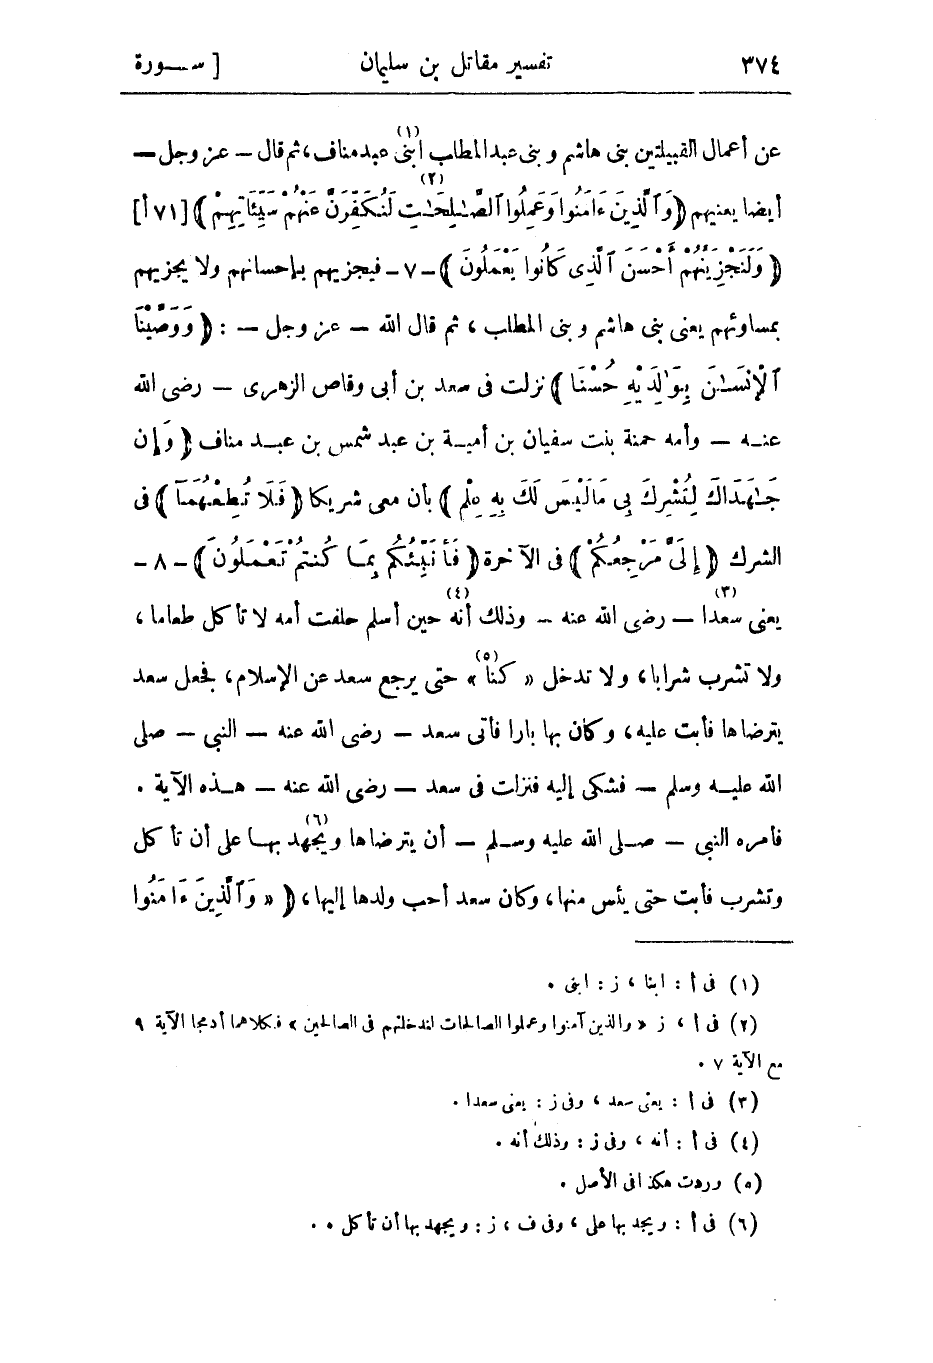 ٣٧٤ تفسير مقاتل بن سليمان [ ســورة
عن أعمال القبيلتين بنى هاشم وبنى عبد المطلب ابنى (١) عبد مناف ، ثم قال — عز وجل —
أيضا يعنيهم ﴿ وَٱلَّذِينَ ءَامَنُوا وَعَمِلُوا ٱلصَّـٰلِحَـٰتِ (٢) لَنُكَفِّرَنَّ عَنْهُمْ سَيِّـَٔاتِهِمْ ﴾ [٧١ أ]
﴿ وَلَنَجْزِيَنَّهُمْ أَحْسَنَ ٱلَّذِى كَانُوا يَعْمَلُونَ ﴾ - ٧ - فيجزيهم بإحسانهم ولا يجزيهم
بمساوئهم يعنى بنى هاشم وبنى المطلب ، ثم قال الله — عز وجل — : ﴿ وَوَصَّيْنَا
ٱلْإِنسَـٰنَ بِوَٰلِدَيْهِ حُسْنًا ﴾ نزلت فى سعد بن أبى وقاص الزهرى — رضى الله
عنـه — وأمه حمنة بنت سفيان بن أميـة بن عبد شمس بن عبـد مناف ﴿ وَإِن
جَـٰهَدَاكَ لِتُشْرِكَ بِى مَا لَيْسَ لَكَ بِهِ عِلْمٌ ﴾ بأن معى شريكا ﴿ فَلَا تُطِعْهُمَآ ﴾ فى
الشرك ﴿ إِلَىَّ مَرْجِعُكُمْ ﴾ فى الآخرة ﴿ فَأُنَبِّئُكُم بِمَـا كُنتُمْ تَعْمَلُونَ ﴾ - ٨ -
يعنى سعدا (٣) — رضى الله عنه — وذلك أنه (٤) حين أسلم حلفت أمه لا تأكل طعاما ،
ولا تشرب شرابا ، ولا تدخل « كنا (٥) » حتى يرجع سعد عن الإسلام ، فجعل سعد
يترضاها فأبت عليه ، وكان بها بارا فأتى سعد — رضى الله عنه — النبى — صلى
الله عليـه وسلم — فشكى إليه فنزلت فى سعد — رضى الله عنه — هـذه الآية .
فأمره النبى — صـلى الله عليه وسـلم — أن يترضاها ويجهد (٦) بهـا على أن تأكل
وتشرب فأبت حتى يئس منها ، وكان سعد أحب ولدها إليها ، ﴿ « وَٱلَّذِينَ ءَامَنُوا
(١) فى أ : ابنا ، ز : ابنى .
(٢) فى أ ، ز « والذين آمنوا وعملوا الصالحات لندخلنهم فى الصالحين » فكلاهما أدمجا الآية ٩
مع الآية ٧ .
(٣) فى أ : يعنى سعد ، وفى ز : يعنى سعدا .
(٤) فى أ : أنه ، وفى ز : وذلك أنه .
(٥) وردت هكذا فى الأصل .
(٦) فى أ : ويجد بها على ، وفى ف ، ز : ويجهد بها أن تأكل . .